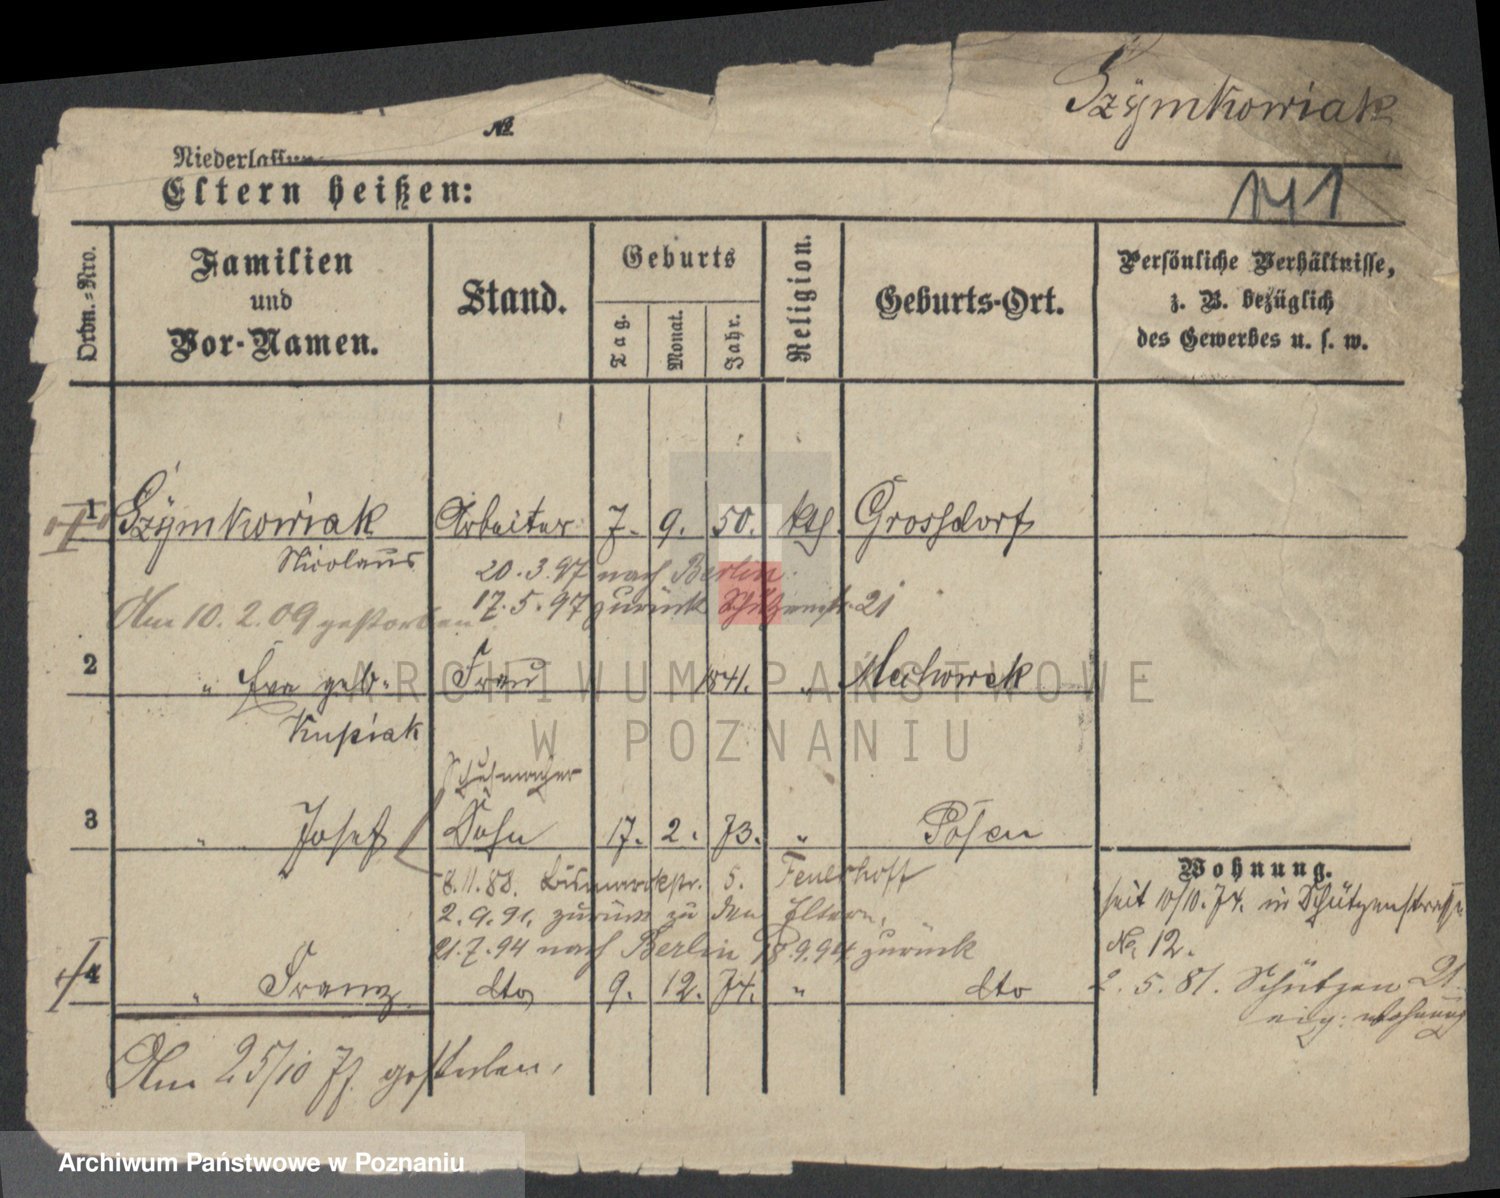 Szymkowiak
№
Niederlassung
Eltern heißen:
141
Ordn.-Nro.
Familien
und
Vor-Namen.
Stand.
Geburts
Tag.
Monat.
Jahr.
Religion.
Geburts-Ort.
Persönliche Verhältnisse,
z. B. bezüglich
des Gewerbes u. s. w.
1 Szymkowiak Arbeiter 7. 9. 50. kth. Grossdorf
Nicolaus
20.3.97 nach Berlin.
17.5.97 zurück Schützenstr. 21
Am 10.2.09 gestorben
2 " Eva geb. Frau 1841. " Mechowek
Kupiak
Schuhmacher
3 " Josef Sohn 17. 2. 73. " Posen
8.11.88. Bismarckstr. 5. Feuerhoff
2.9.91. zurück zu den Eltern.
21.7.94 nach Berlin 18.9.94 zurück
4 " Franz dto 9. 12. 74. " dto
Am 25/10 77 gestorben.
Wohnung.
seit 10/10.74. in Schützenstrasse
No. 12.
2.5.81. Schützen 21.
eig: Wohnung
ARCHIWUM PAŃSTWOWE
W POZNANIU
Archiwum Państwowe w Poznaniu